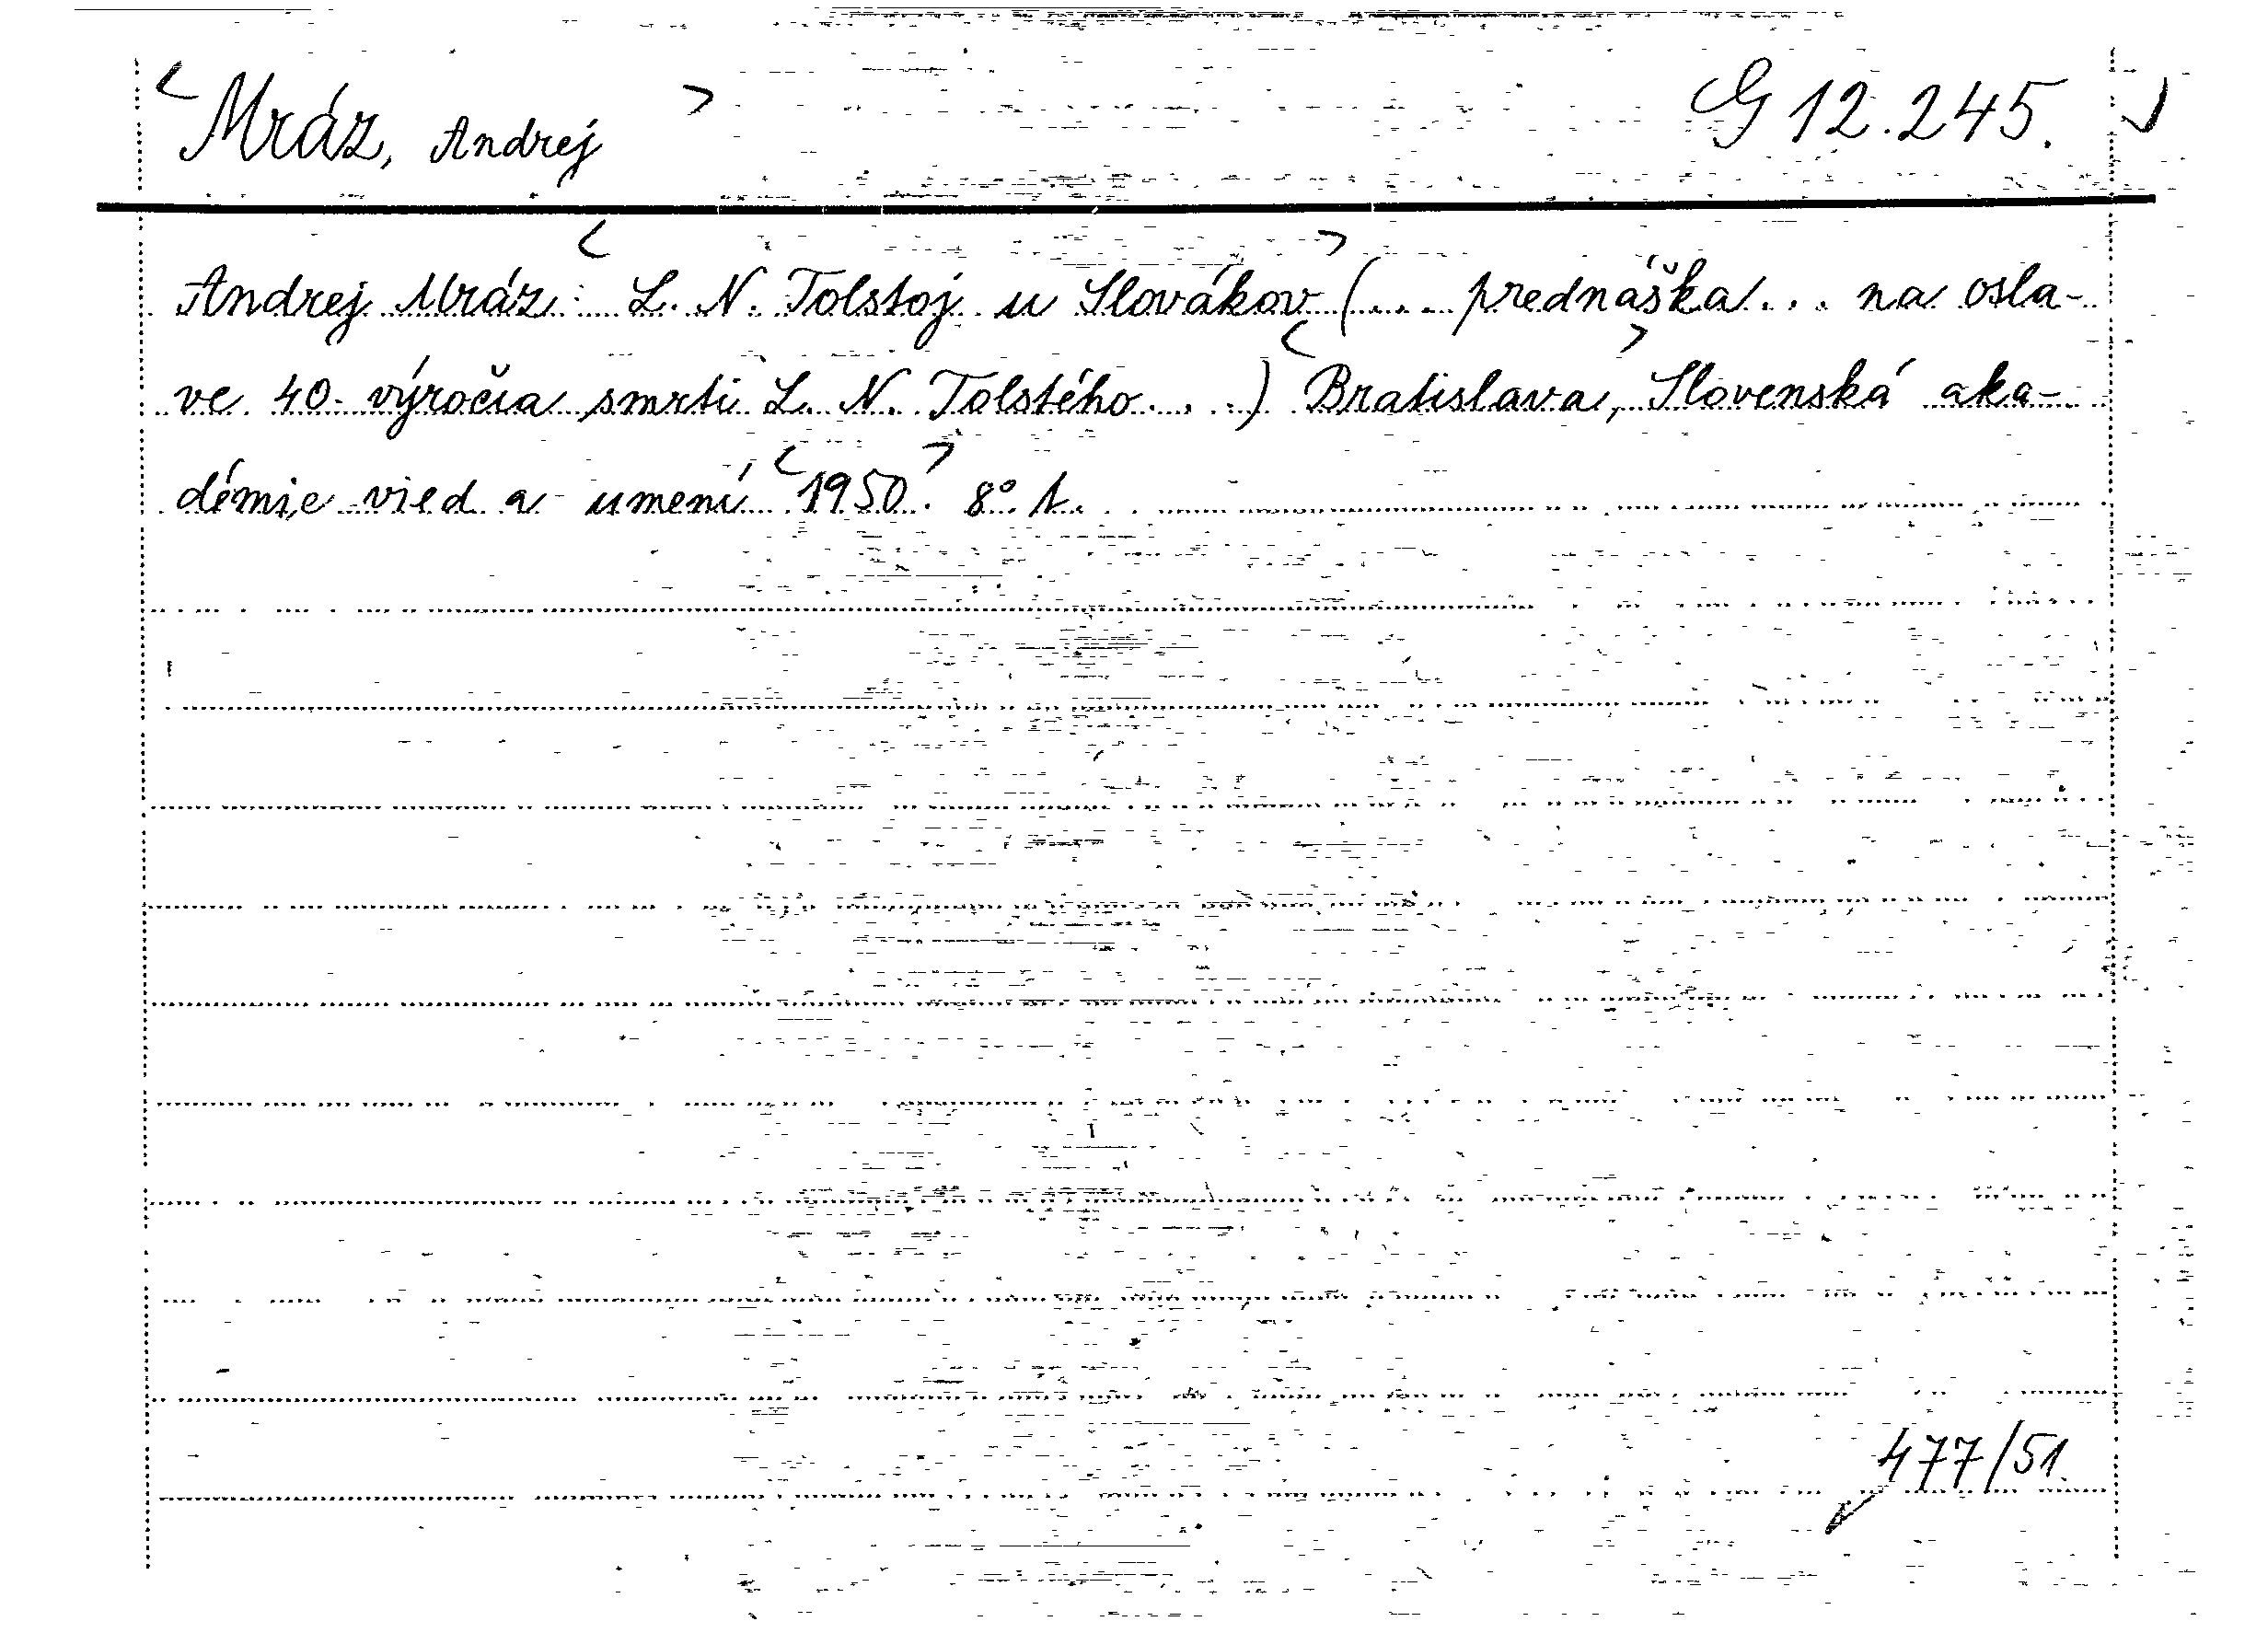 <Mráz, Andrej> G 12.245.
Andrej Mráz: <L. N. Tolstoj u Slovákov> (... prednáška... na osla-
ve 40. výročia smrti L. N. Tolstého...) <Bratislava,> Slovenská aka-
démie vied a umení, <1950.> 8° 1.
477/51.